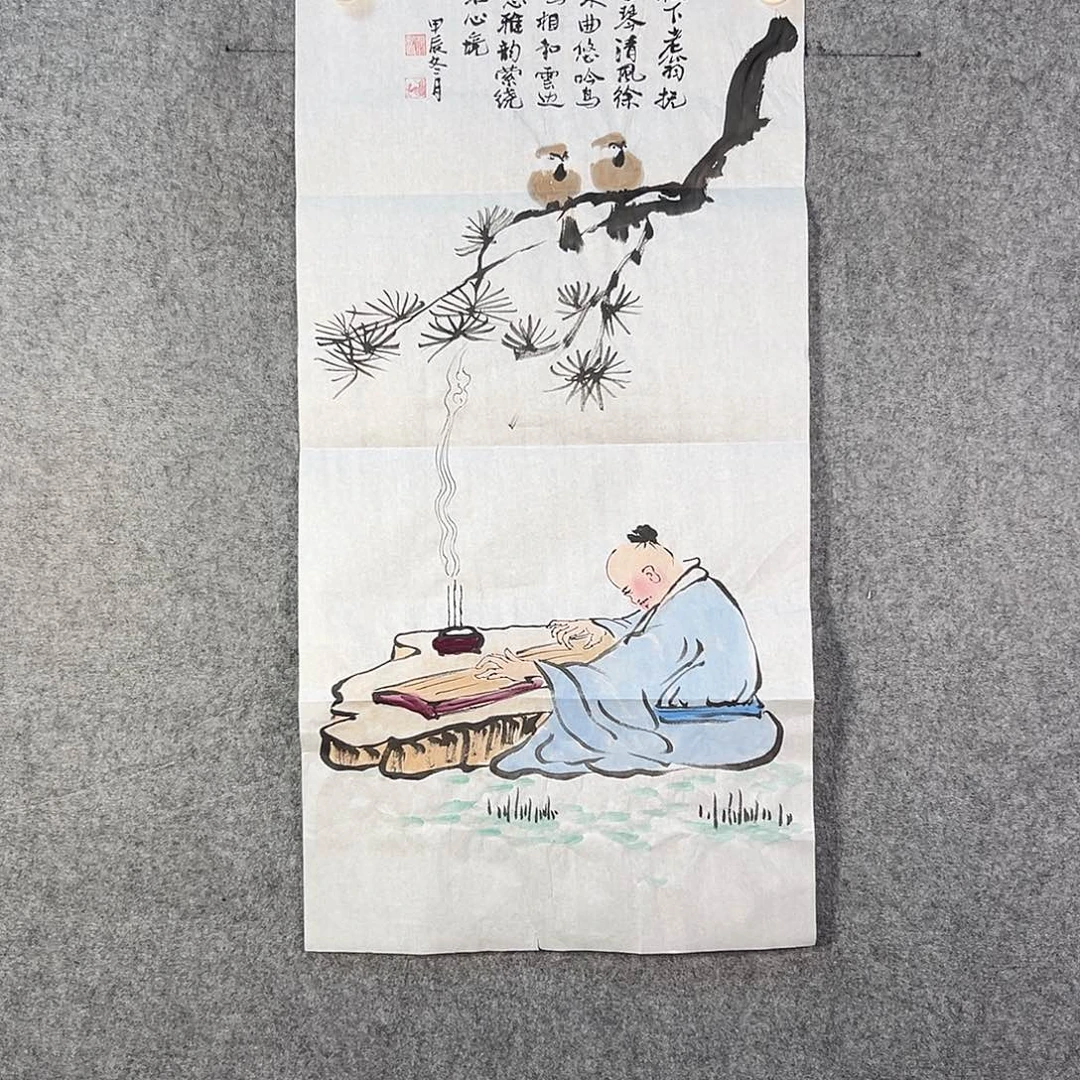 下老翁抚
琴清风徐
来曲悠吟鸟
相和雲边
雅韵萦绕
心境
甲辰冬月